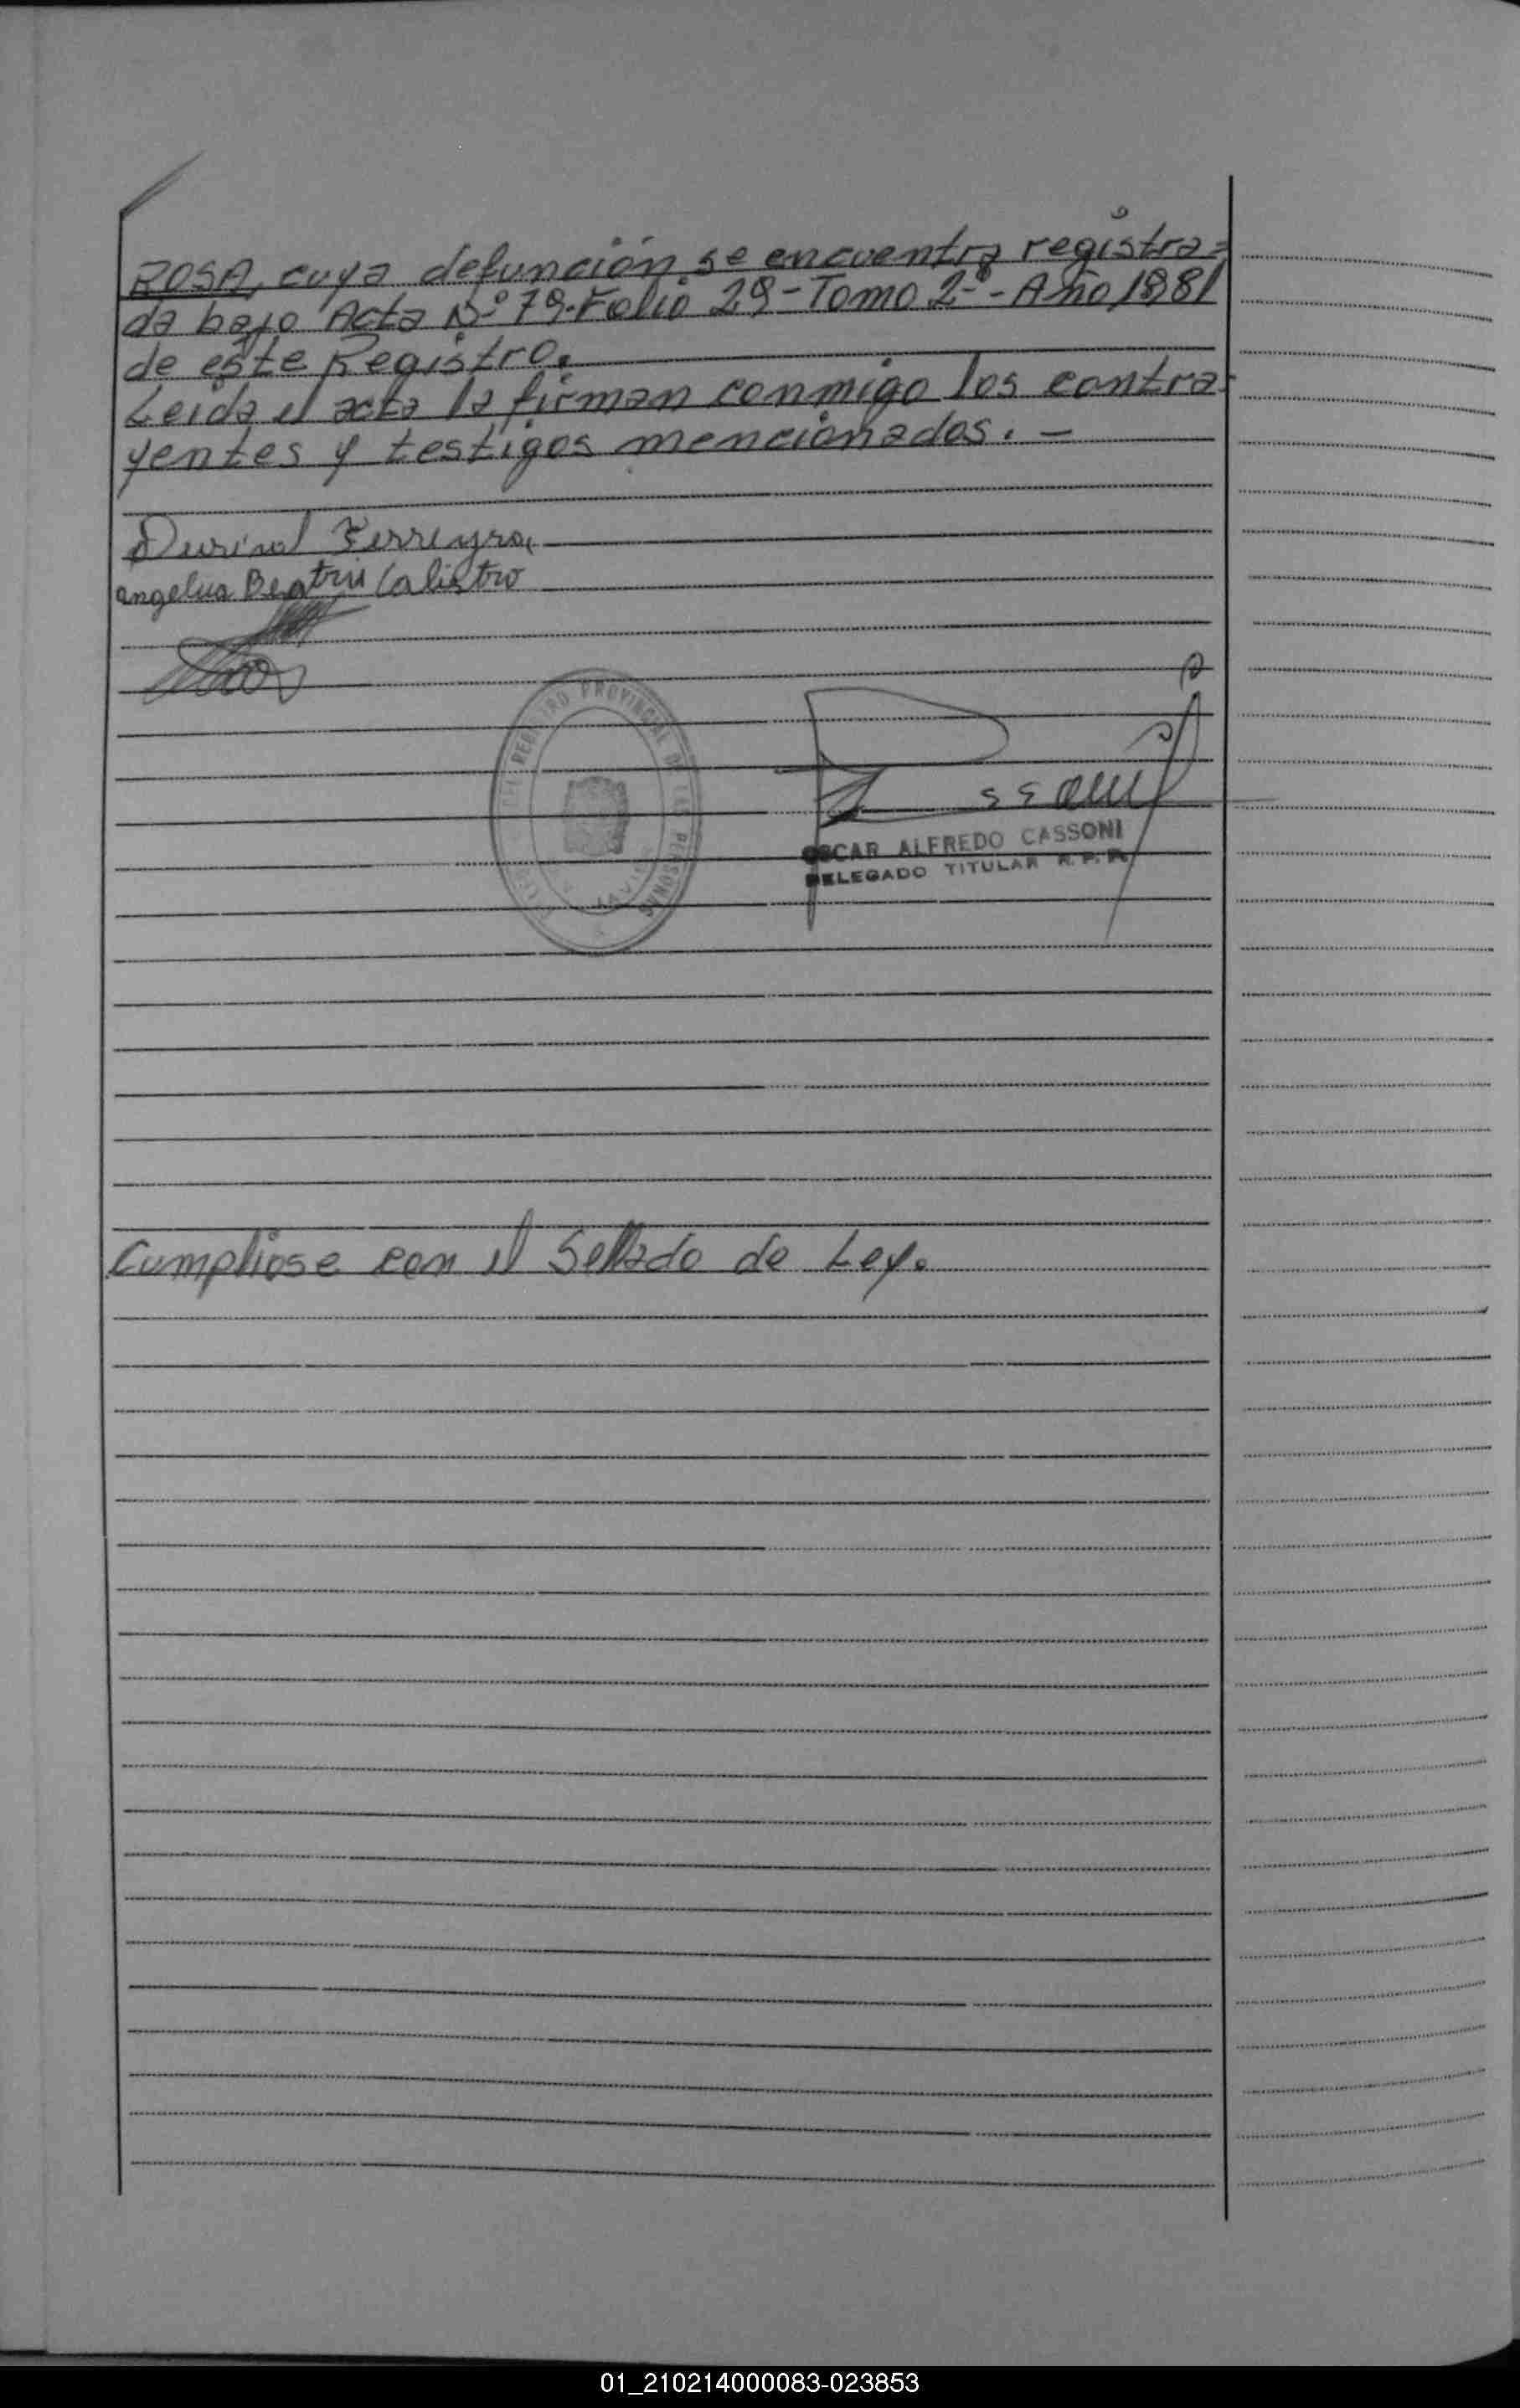 ROSA, cuya defunción se encuentra registra=
da bajo Acta Nº 79-Folio 29-Tomo 2º-Año 1981
de este Registro.
Leida el acta la firman conmigo los contra-
yentes y testigos mencionados. -
Ferreyra
Angelica Beatriz Calistro
REGISTRO PROVINCIAL DE LAS PERSONAS
OSCAR ALFREDO CASSONI
DELEGADO TITULAR R. P. P.
Cumpliose con el Sellado de Ley.
01_210214000083-023853